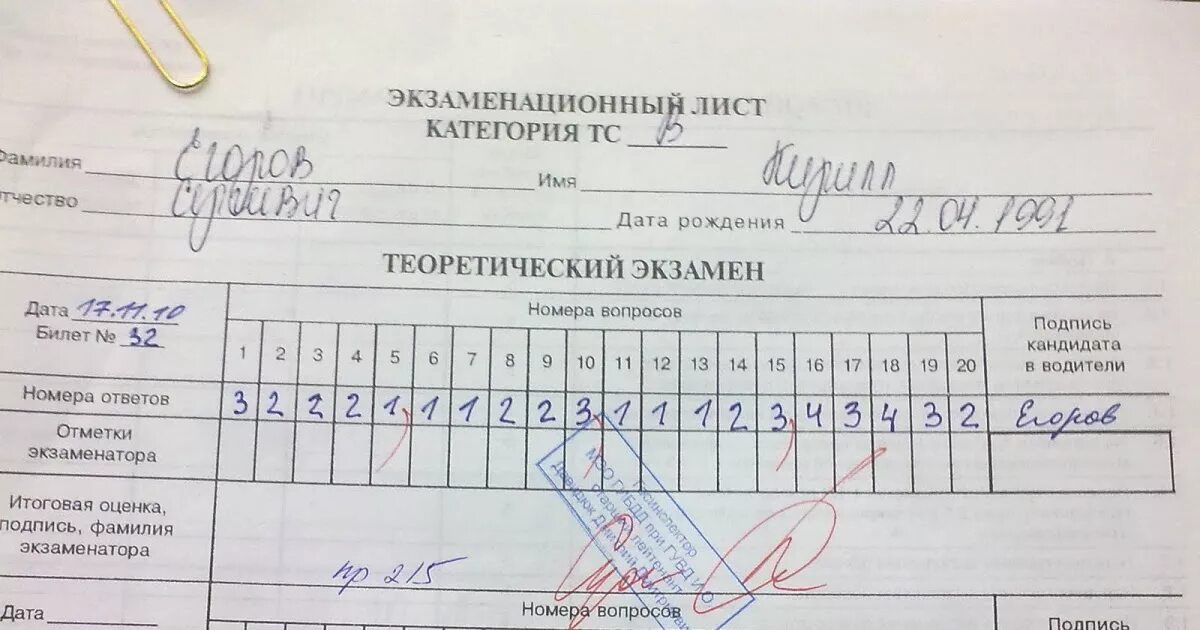 ЭКЗАМЕНАЦИОННЫЙ ЛИСТ
КАТЕГОРИЯ ТС В
Фамилия Егоров Имя Кирилл
тчество Сергеевич Дата рождения 22.04.1991
ТЕОРЕТИЧЕСКИЙ ЭКЗАМЕН
Дата 17.11.10
Билет № 32
Номера вопросов
Подпись кандидата в водители
1 2 3 4 5 6 7 8 9 10 11 12 13 14 15 16 17 18 19 20
Номера ответов 3 2 2 2 1 1 1 2 2 3 1 1 1 2 3 4 3 4 3 2 Егоров
Отметки
экзаменатора
Итоговая оценка,
подпись, фамилия
экзаменатора
пр 215
Госинспектор
МЭО ГИБДД при ГУВД И О
старший лейтенант
Дата
Номера вопросов
Подпись